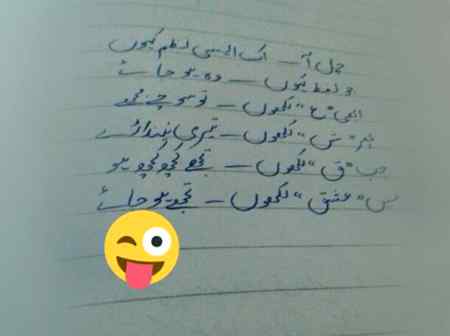 چل آ۔ اک ایسی نظم کہوں
جو لفظ کہوں۔ وہ ہو جائے
ابھی "ع" لکھوں۔ تو سوچے مجھے
پھر "ش" لکھوں۔ تیری نیند اڑے
جب "ق" لکھوں۔ تجھے کچھ کچھ ہو
میں "عشق" لکھوں۔ تجھے ہو جائے